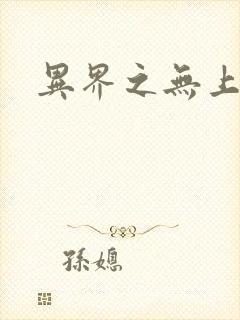 異界之無上
孫媳